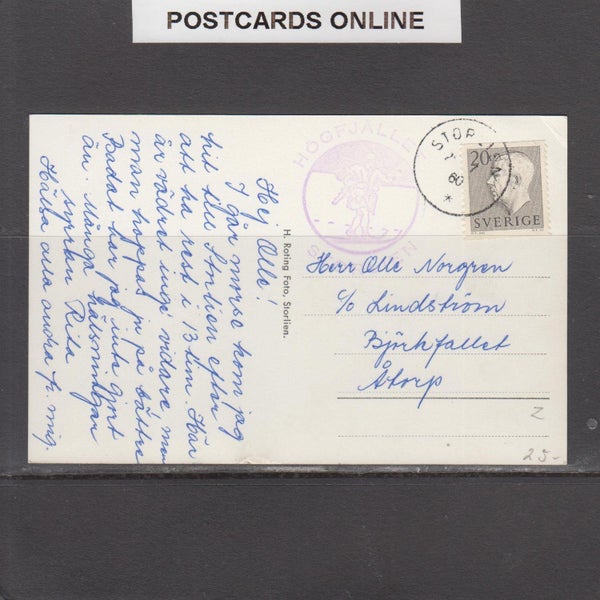 POSTCARDS ONLINE
Hej Olle!
I går morse kom jag
hit till Storlien efter
att ha rest i 13 tim. Här
är vädret inge' vidare men
man hoppas ju på bättre
Badat har jag inte gjort
än. Många hälsningar
syrran Rita
Hälsa alla andra fr. mig.
H. Roting Foto, Storlien.
HÖGFJÄLLET
STORLIEN
60
20
SVERIGE
Herr Olle Norgren
c/o Lindström
Björkfallet
Åtorp
Z
25-